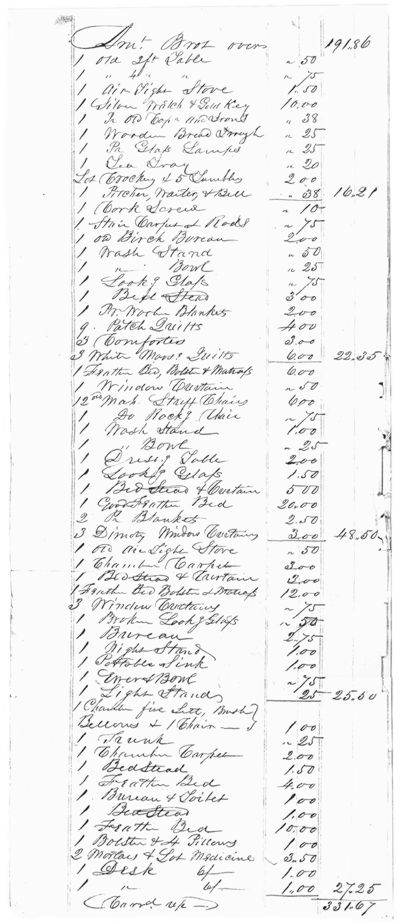 Amt. Brot over 191.86
1 old 2ft Table " 50
1 " 4 " " " 75
1 Air Tight Stove 1.50
1 Silver Watch & Gold Key 10.00
1 Pr Old And Irons " 38
1 Wooden Bread Trough " 25
1 Pr Glass Lamps " 25
1 Tea Tray " 20
Lot Crockery & 5 Tumbls 2 00
1 Pitcher, Waiter, & Bell " 38 16.21
1 Cork Screw " 10
1 Stair Carpet & Rods " 75
1 old Birch Bureau 2.00
1 Wash Stand " 50
1 " Bowl " 25
1 Lookg Glass " 75
1 Bed Stead 3 00
1 Pr. Blankets 2.00
9. Patch Quilts 4.00
3 Comforters 3.00
3 White Quilts 6.00 22.35
1 Feather Bed, Bolster & Matrass 6 00
1 Window Curtain " 50
12 Mah Stuff Chairs 6 00
1 Do Rockg Chair " 75
1 Wash Stand 1.00
1 " Bowl " 25
1 Dressg Table 2.00
1 Lookg Glass 1.50
1 Bed Stead & Curtain 5 00
1 Good Feather Bed 20.00
2 Pr Blankets 2.50
3 Dimoty Window Curtains 3.00 48.50
1 old air Tight Stove " 50
1 Chamber Carpet 3.00
1 Bed Stead & Curtain 2.00
1 Feather Bed Bolster & Matrass 12.00
3 Window Curtains " 75
1 Broken Lookg Glass " 50
1 Bureau 2.75
1 Night Stand 1 00
1 Portable Sink 1.00
1 Ewer & Bowl " 75
1 Light Stand 25 25.50
1 Chamber fire Sett, Brush
Bellows & 1 Chair 1 00
1 Trunk " 25
1 Chamber Carpet 2.00
1 Bed Stead 1.50
1 Feather Bed 4.00
1 Bureau & Toilet 1 00
1 Bed Stead 1.00
1 Feather Bed 10.00
1 Bolster & 4 Pillows 1 00
2 Mortars & Lot Medicine 3.50
1 Desk 6/- 1.00
1 " 6/- 1.00 27.25
(Carrd up) 331.67